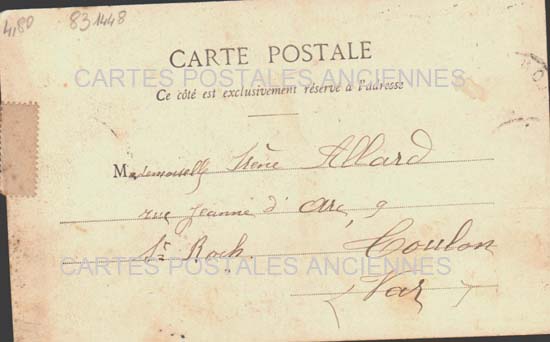 4,80 831448
CARTE POSTALE
CARTES POSTALES ANCIENNES
Ce côté est exclusivement réservé à l'adresse
Mademoiselle Irène Allard
rue Jeanne d'Arc, 9
St Roch. Toulon
CARTES POSTALES ANCIENNES
(Var)